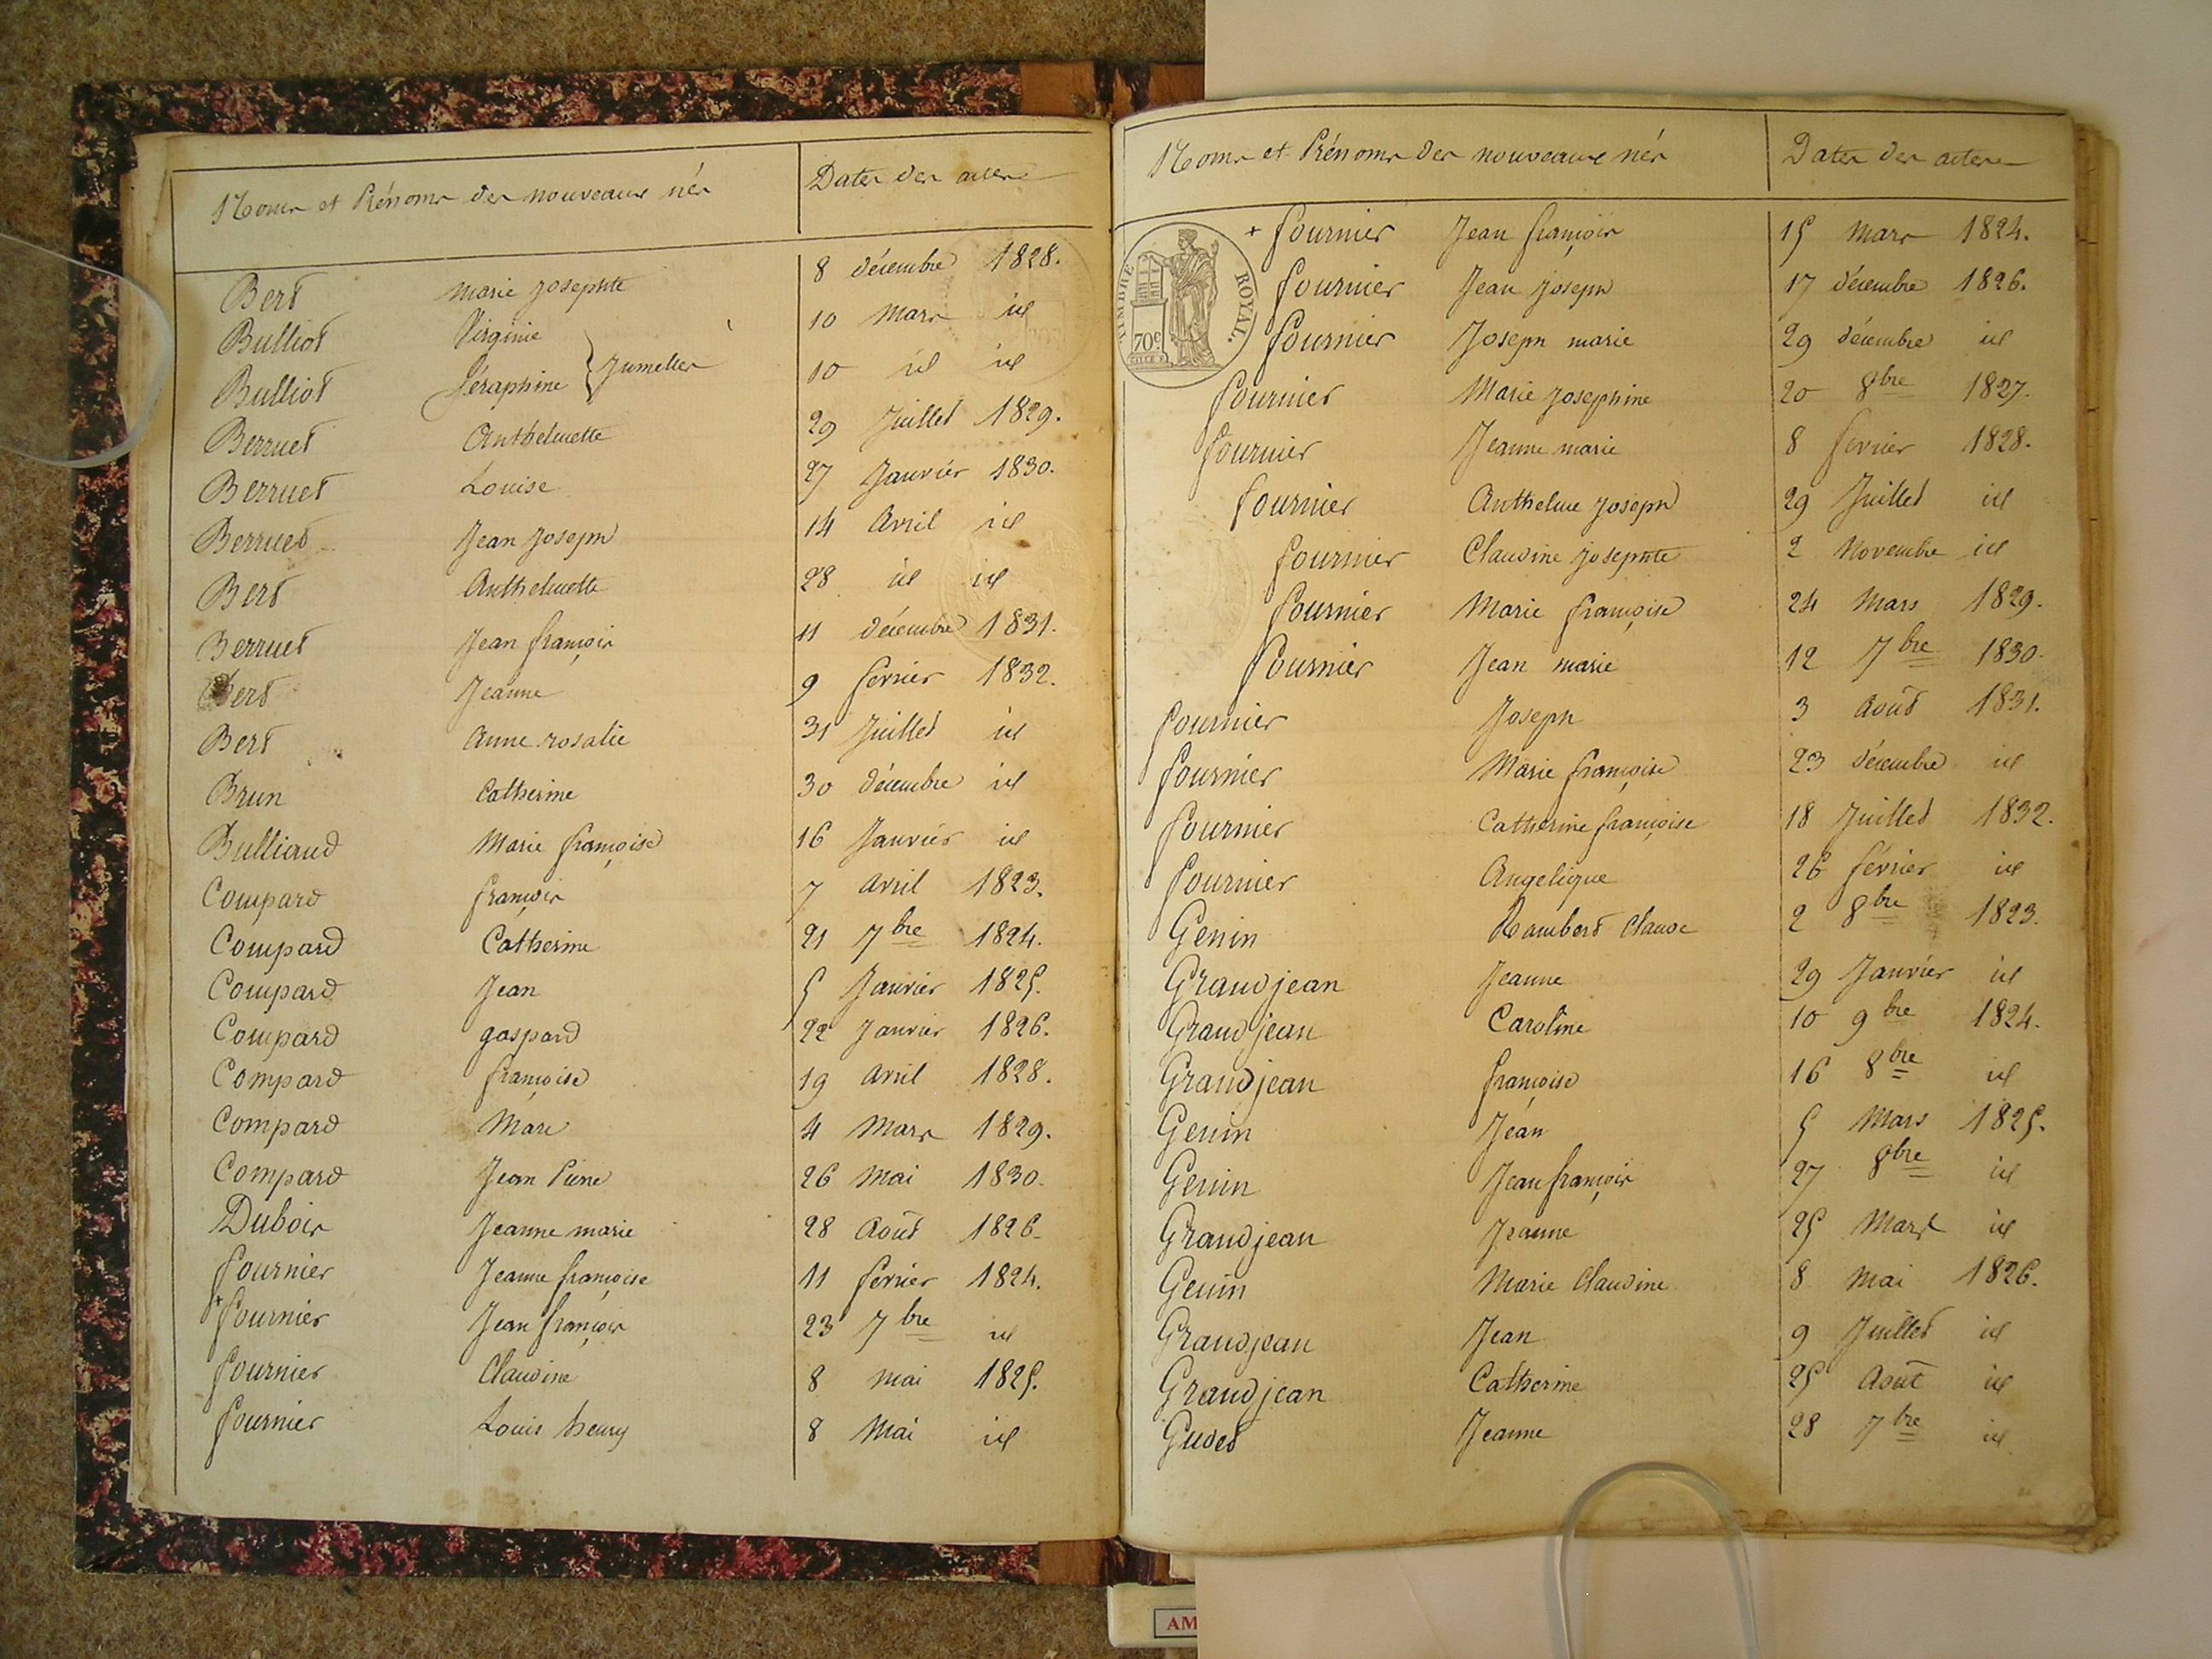 Noms et Prénoms des nouveaux nés Dates des actes
Bert Marie Josephte 8 décembre 1828.
Bulliot Virginie 10 Mars id
Bulliot Séraphine } Jumelles 10 id id
Berruet Anthelmette 29 Juillet 1829.
Berruet Louise 27 Janvier 1830.
Berruet Jean Joseph 14 Avril id
Bert Anthelmette 28 id id
Berruet Jean françois 11 décembre 1831.
Bert Jeanne 9 fevrier 1832.
Bert Anne rosalie 31 Juillet id
Brun Catherine 30 décembre id
Bulliaud Marie françoise 16 Janvier id
Compard françois 7 Avril 1823.
Compard Catherine 21 7bre 1824.
Compard Jean 5 Janvier 1825.
Compard gaspard 22 Janvier 1826.
Compard françoise 19 Avril 1828.
Compard Marc 4 Mars 1829.
Compard Jean Pierre 26 Mai 1830.
Dubois Jeanne marie 28 Août 1826.
fournier Jeanne françoise 11 fevrier 1824.
+ fournier Jean françois 23 7bre id
fournier Claudine 8 mai 1825.
fournier Louis henry 8 Mai id
Noms et Prénoms des nouveaux nés Dates des actes
TIMBRE ROYAL.
70c
+ fournier Jean françois 15 Mars 1824.
fournier Jean Joseph 17 décembre 1826.
fournier Joseph marie 29 décembre id
fournier Marie Josephine 20 8bre 1827.
fournier Jeanne marie 8 fevrier 1828.
fournier Anthelme Joseph 29 Juillet id
fournier Claudine Josephte 2 Novembre id
fournier Marie françoise 24 Mars 1829.
fournier Jean marie 12 7bre 1830.
fournier Joseph 3 Août 1831.
fournier Marie françoise 23 décembre id
fournier Catherine françoise 18 Juillet 1832.
fournier Angelique 26 février id
Genin Rambert Claude 2 8bre 1823.
Grandjean Jeanne 29 Janvier id
Grandjean Caroline 10 9bre 1824.
Grandjean françoise 16 8bre id
Genin Jean 5 Mars 1825.
Genin Jean françois 27 8bre id
Grandjean Jeanne 25 Mars id
Genin Marie Claudine 8 Mai 1826.
Grandjean Jean 9 Juillet id
Grandjean Catherine 25 Août id
Gudet Jeanne 28 7bre id
AM